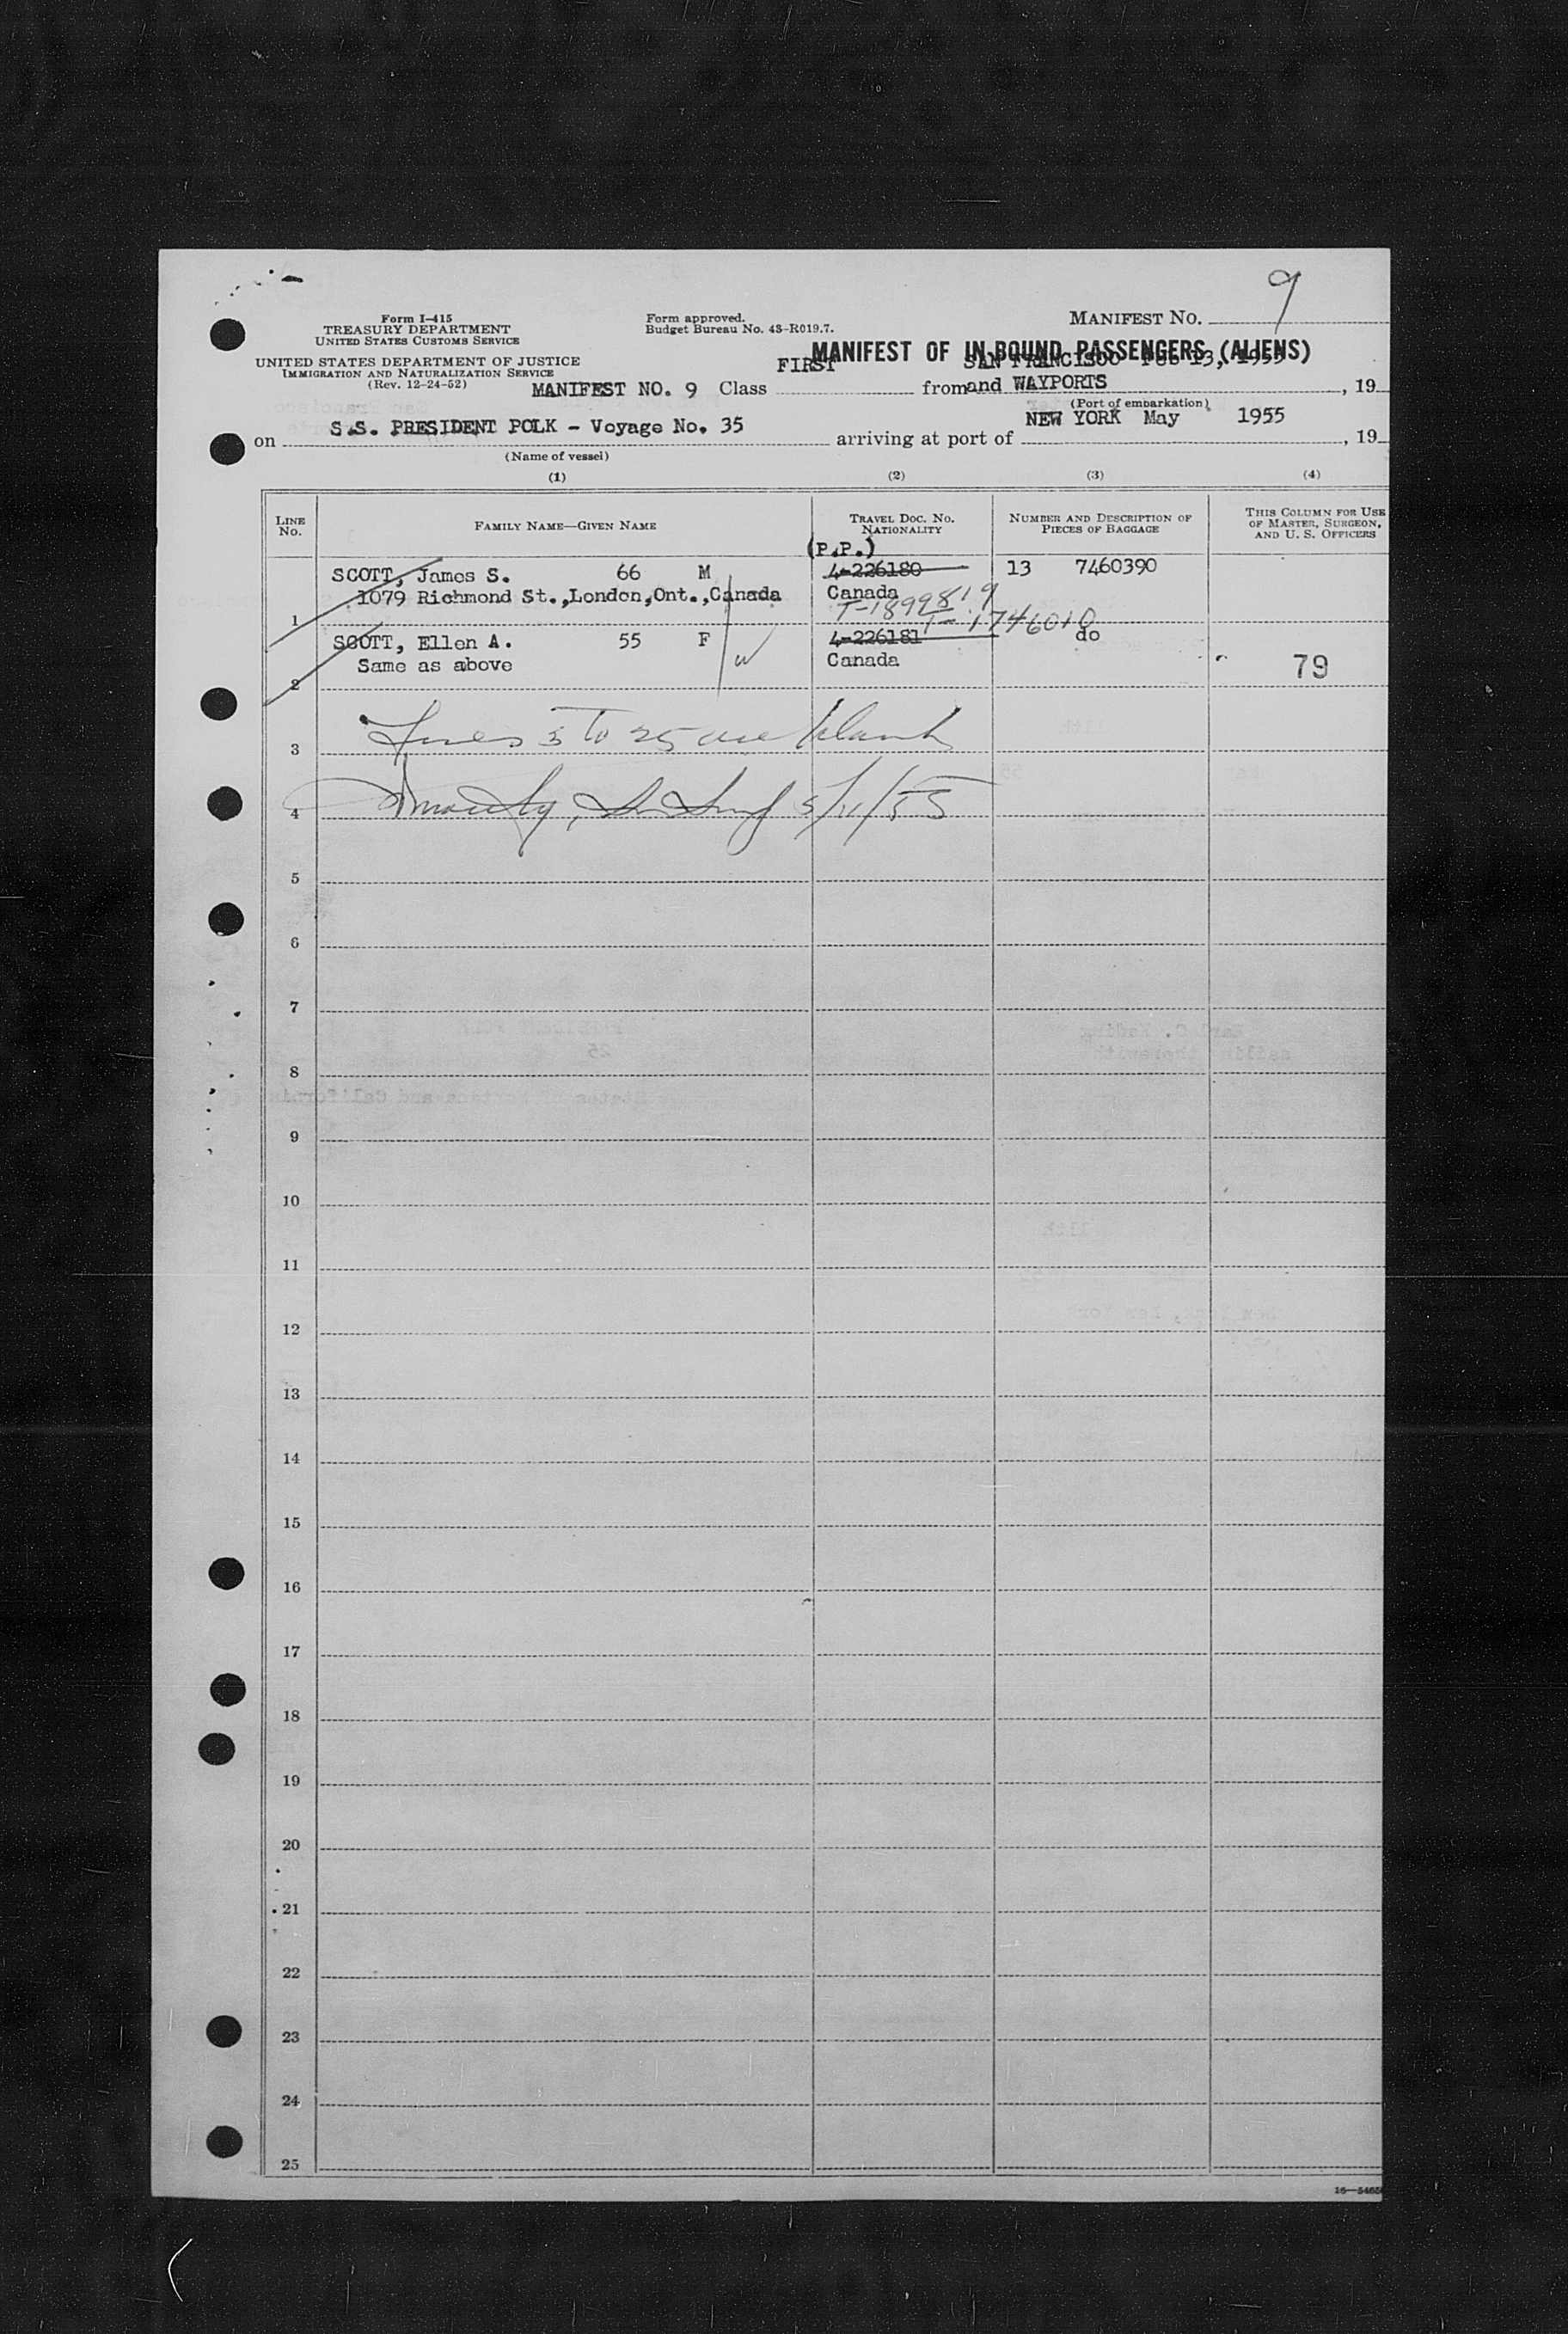 9
Form I-415
TREASURY DEPARTMENT
UNITED STATES CUSTOMS SERVICE
Form approved.
Budget Bureau No. 43-R019.7.
MANIFEST NO.
UNITED STATES DEPARTMENT OF JUSTICE
IMMIGRATION AND NATURALIZATION SERVICE
(Rev. 12-24-52)
MANIFEST OF IN-BOUND PASSENGERS (ALIENS)
FIRST SAN FRANCISCO Feb 13, 1955
MANIFEST NO. 9 Class from and WAYPORTS , 19
(Port of embarkation)
on S.S. PRESIDENT POLK - Voyage No. 35 arriving at port of NEW YORK May 1955 , 19
(Name of vessel)
(1) (2) (3) (4)
LINE NO.
FAMILY NAME—GIVEN NAME
TRAVEL DOC. NO. NATIONALITY
NUMBER AND DESCRIPTION OF PIECES OF BAGGAGE
THIS COLUMN FOR USE OF MASTER, SURGEON, AND U. S. OFFICERS
(P.P.)
SCOTT, James S. 66 M 4-226180 13 7460390
1079 Richmond St.,London,Ont.,Canada Canada
1 T-1899819
T-1746010
SCOTT, Ellen A. 55 F 4-226181 do
Same as above Canada 79
2
Lines 3 to 25 are blank
3
4 5/11/55
5
6
7
8
9
10
11
12
13
14
15
16
17
18
19
20
21
22
23
24
25